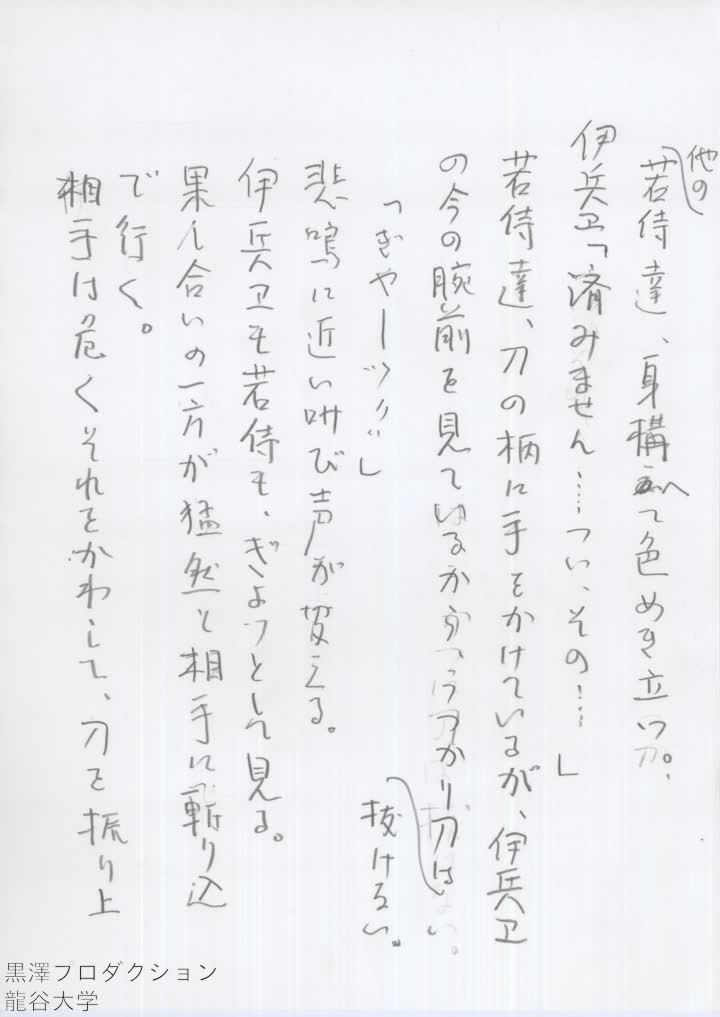 他の
若侍達、身構えて色めき立つ。
伊兵卫「済みません……つい、その……」
若侍達、刀の柄に手をかけているが、伊兵卫
の今の腕前を見ているからうっかり刀は
抜けない。
「ぎやーッッ!!」
悲鳴に近い叫び声が聞える。
伊兵卫も若侍も、ぎょっとして見る。
果し合いの一方が猛然と相手に斬り込
で行く。
相手は危くそれをかわして、刀を振り上
黒澤プロダクション
龍谷大学